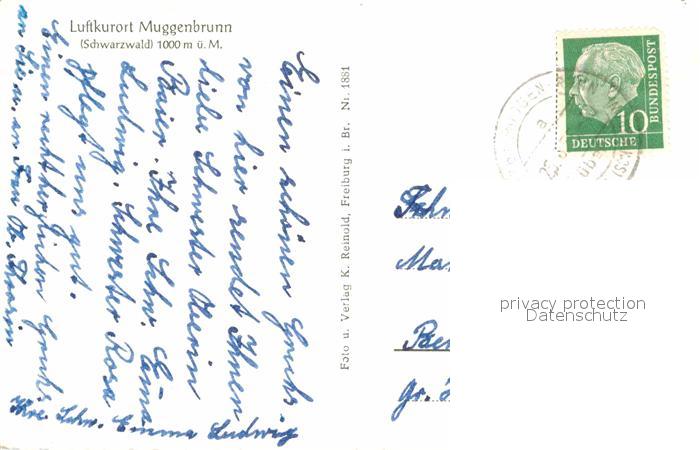 Luftkurort Muggenbrunn
(Schwarzwald) 1000 m ü. M.
Einen schönen Gruß
von hier sendet Ihnen
liebe Schwester Oberin
Ihre Schw. Emma
Ludwig. Schwester Rosa
pflegt uns gut.
Einen recht herzlichen Gruß
an Sie u. an Frau
Ihre Schw. Emma Ludwig
Foto u. Verlag K. Reinold, Freiburg i. Br. Nr. 1881
10
DEUTSCHE
BUNDESPOST
privacy protection
Datenschutz